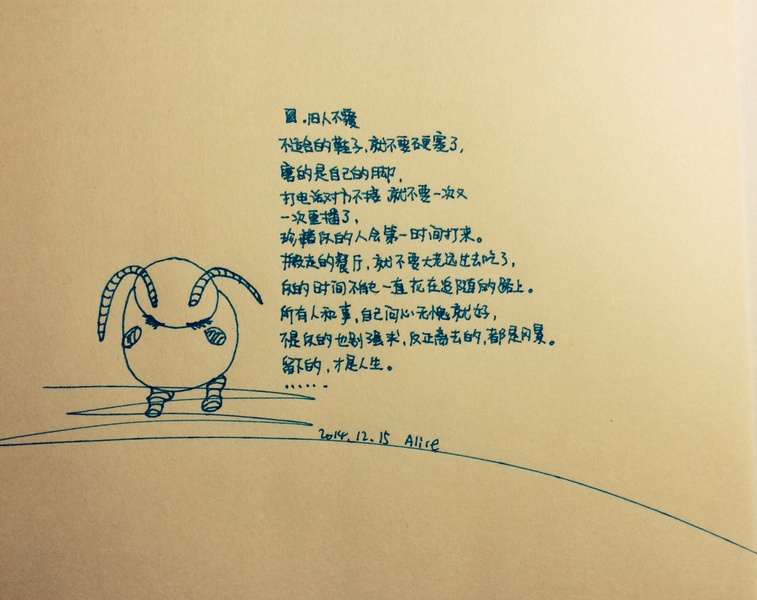 旧人不覆
不适合的鞋子,就不要硬塞了,
磨的是自己的脚,
打电话对方不接 就不要一次又
一次重播了,
珍惜你的人会第一时间打来。
搬走的餐厅,就不要大老远过去吃了,
你的时间不能一直花在追随的路上。
所有人和事,自己问心无愧就好,
不是你的也别强求,反正离去的,都是风景。
留下的,才是人生。
......
2014.12.15 Alice